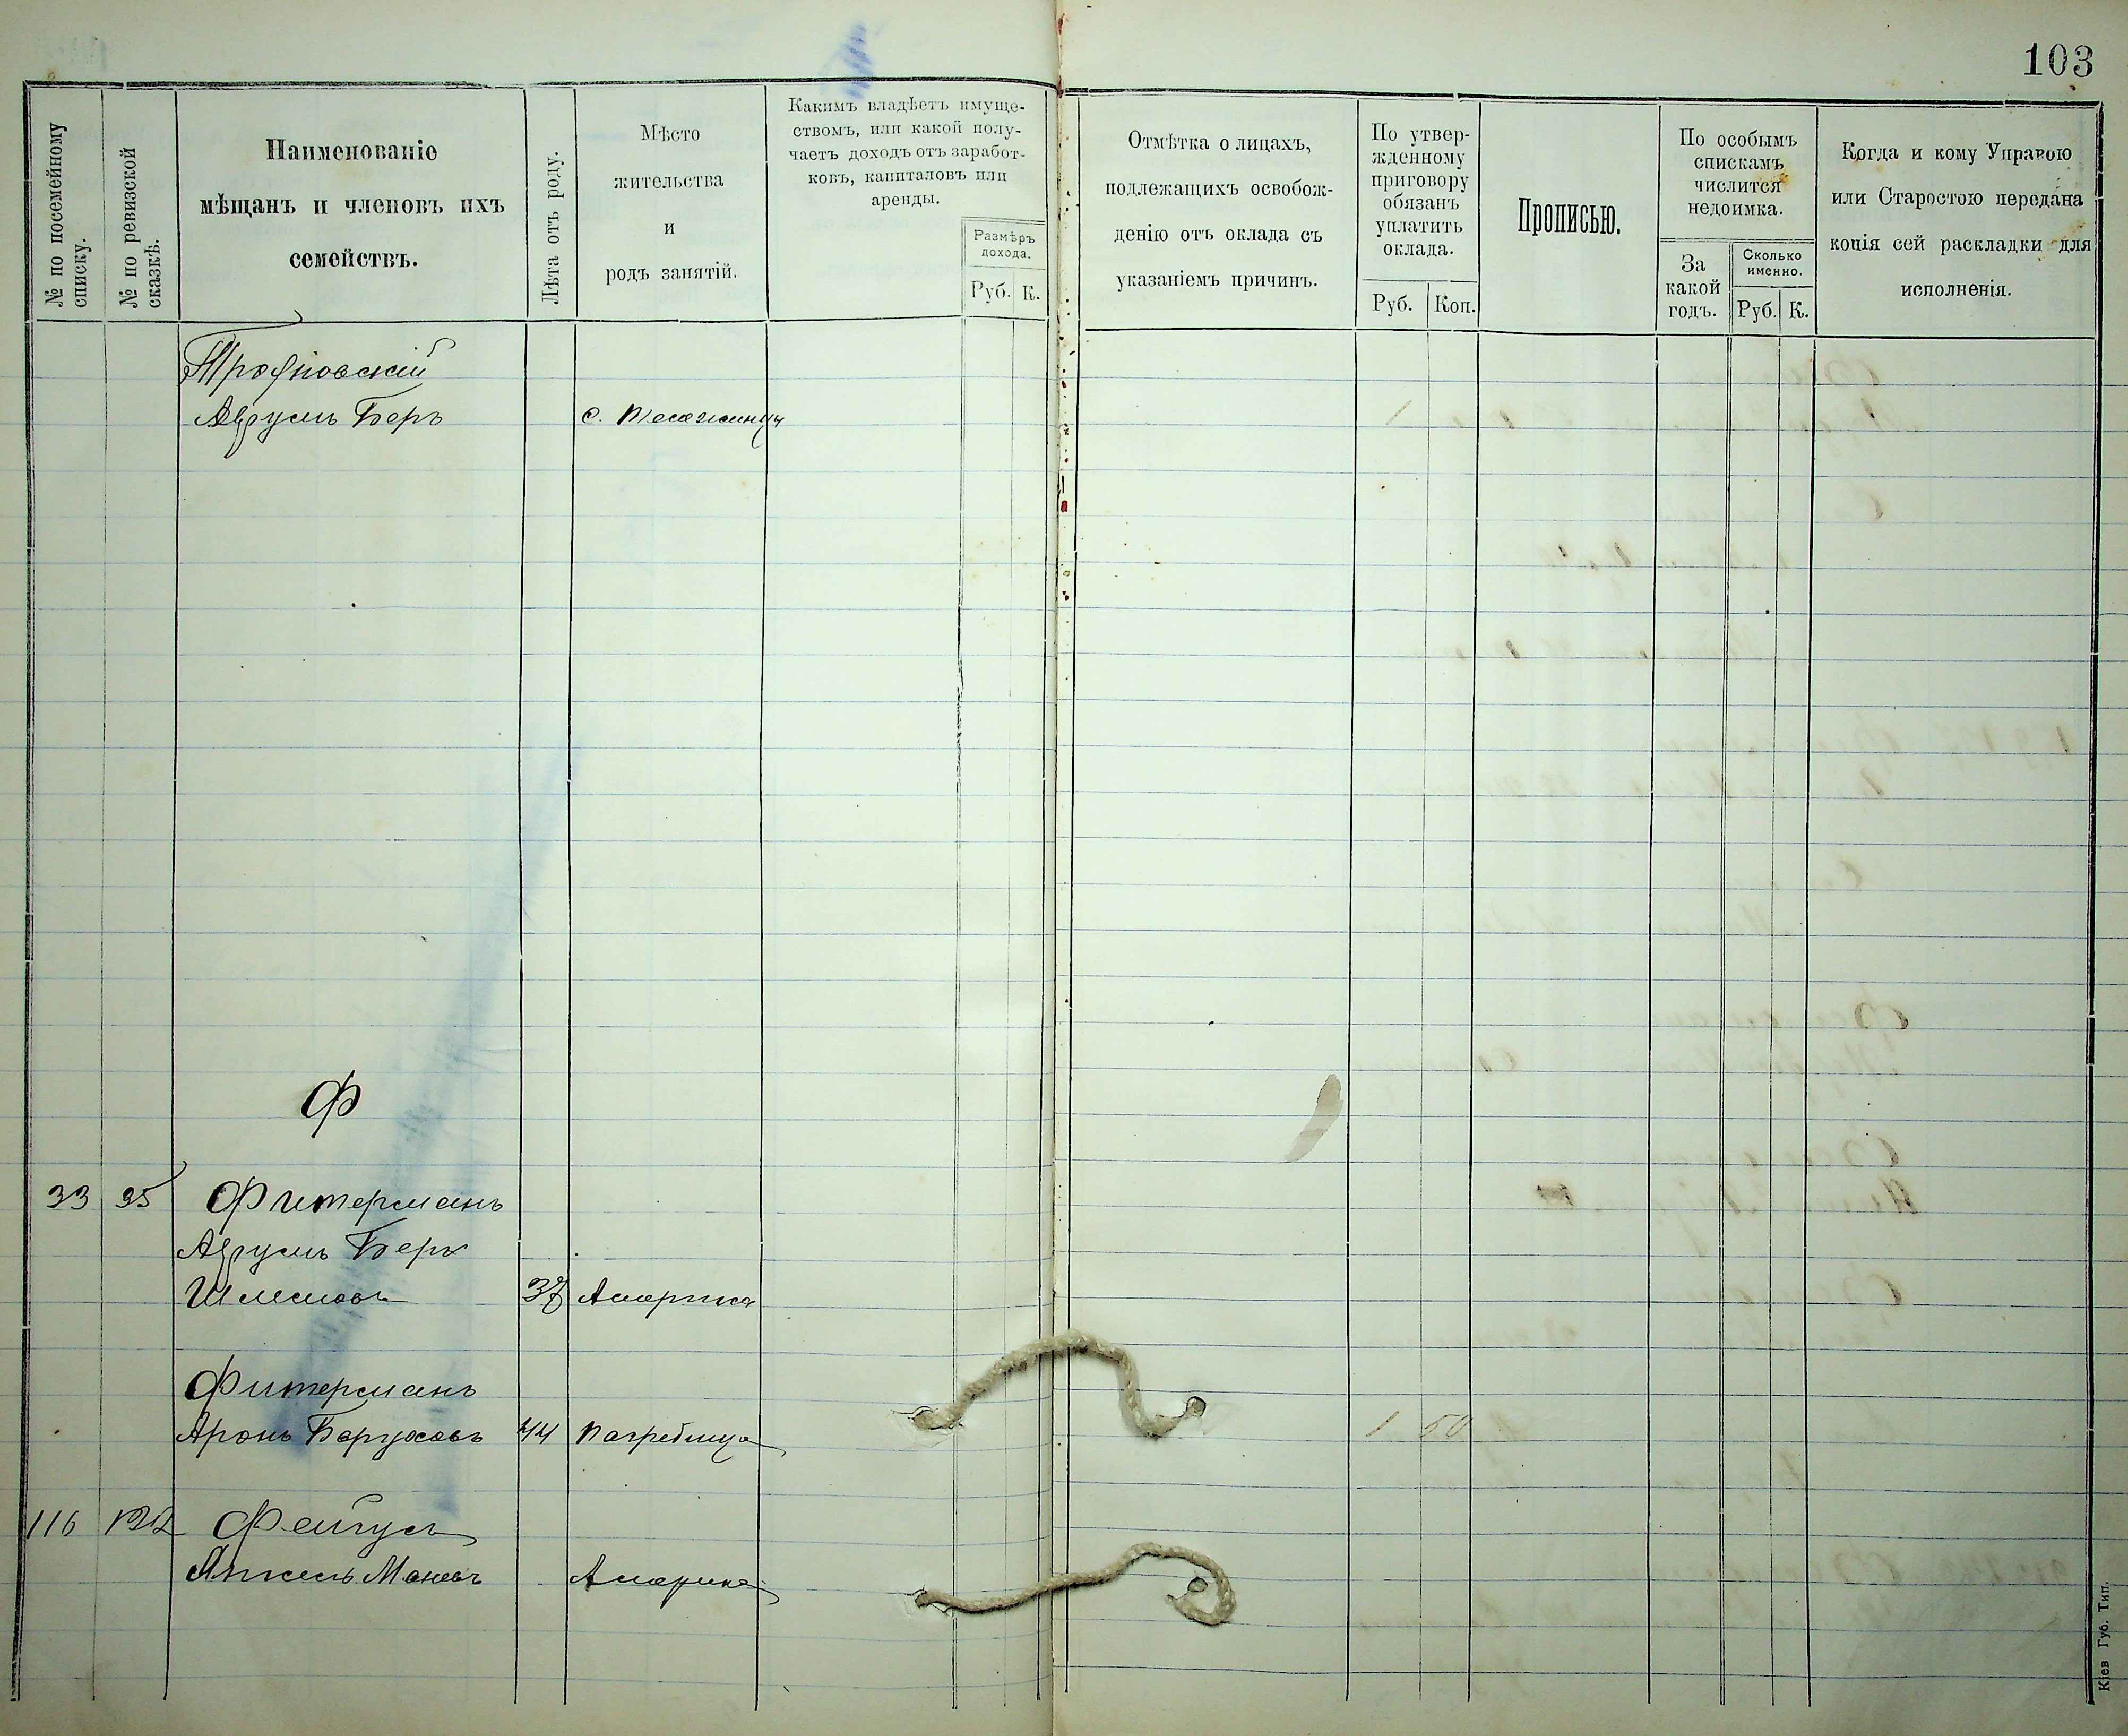 103
№ по посемейному списку.
№ по ревизской сказкѣ.
Наименованіе
мѣщанъ и членовъ ихъ
семействъ.
Лѣта отъ роду.
Мѣсто
жительства
и
родъ занятій.
Какимъ владѣетъ имуще-
ствомъ, или какой полу-
чаетъ доходъ отъ заработ-
ковъ, капиталовъ или
аренды.
Размѣръ
дохода.
Руб. К.
Отмѣтка о лицахъ,
подлежащихъ освобож-
денію отъ оклада съ
указаніемъ причинъ.
По утвер-
жденному
приговору
обязанъ
уплатить
оклада.
Руб. Коп.
Прописью.
По особымъ
спискамъ
числится
недоимка.
За
какой
годъ.
Сколько
именно.
Руб. К.
Когда и кому Управою
или Старостою передана
копія сей раскладки для
исполненія.
Аврумъ Беръ с.
Ф
33 35 Фитерманъ
Аврумъ Беръ
Шлемовъ 37 Америка
Фитерманъ
Аронъ Баруховъ 44 Погребища 1 50
116 Фейгусъ
Янкель Америка
Кіев Губ. Тип.